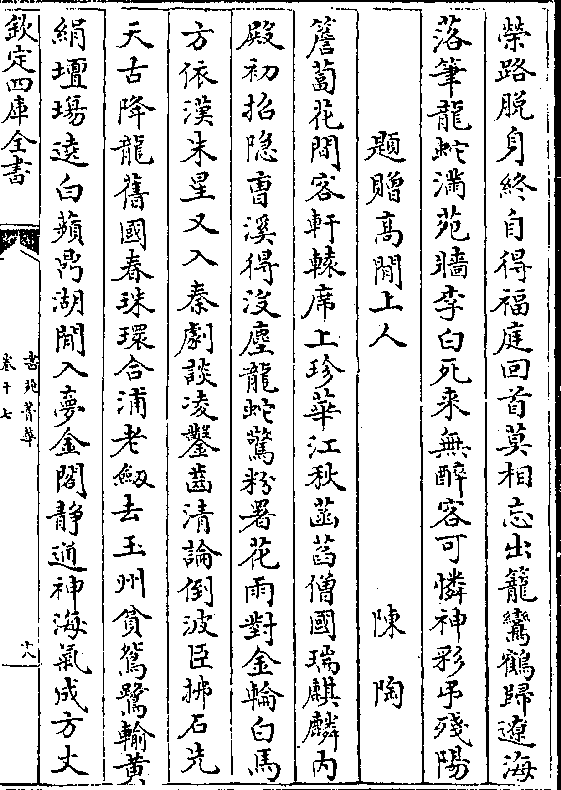 榮路脱身終自得福庭回首莫相忘出籠鸞鶴歸遼海
落筆龍蛇滿苑牆李白死来無醉客可憐神彩弔殘陽
題贈高閒上人　陳陶
簷蔔花間客軒轅席上珍華江秋菡萏僧國瑞麒麟内
殿初招隠曺溪得没塵龍蛇驚粉署花雨對金輪白馬
方依漢朱星又入秦劇談凌鑿齒清論倒波臣拂石先
天古降龍舊國春珠環合浦老劔去玉州貧鴛鷺輸黄
絹壇塲逺白蘋鬲湖閒入夢金閣静通神海氣成方丈
欽定四庫全書
書苑菁華
卷十七
十八